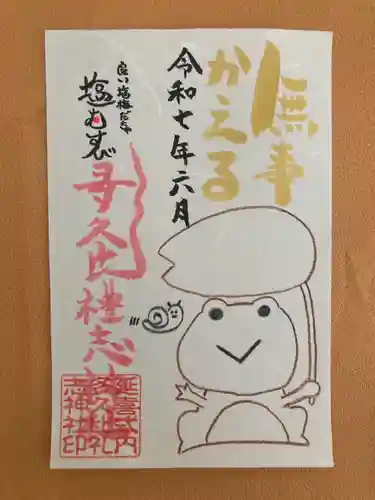 無事
かえる
令和七年六月
良い塩梅だちゅ
塩むすび
母久比礼志神社
延喜式内
多久比礼
志神社印